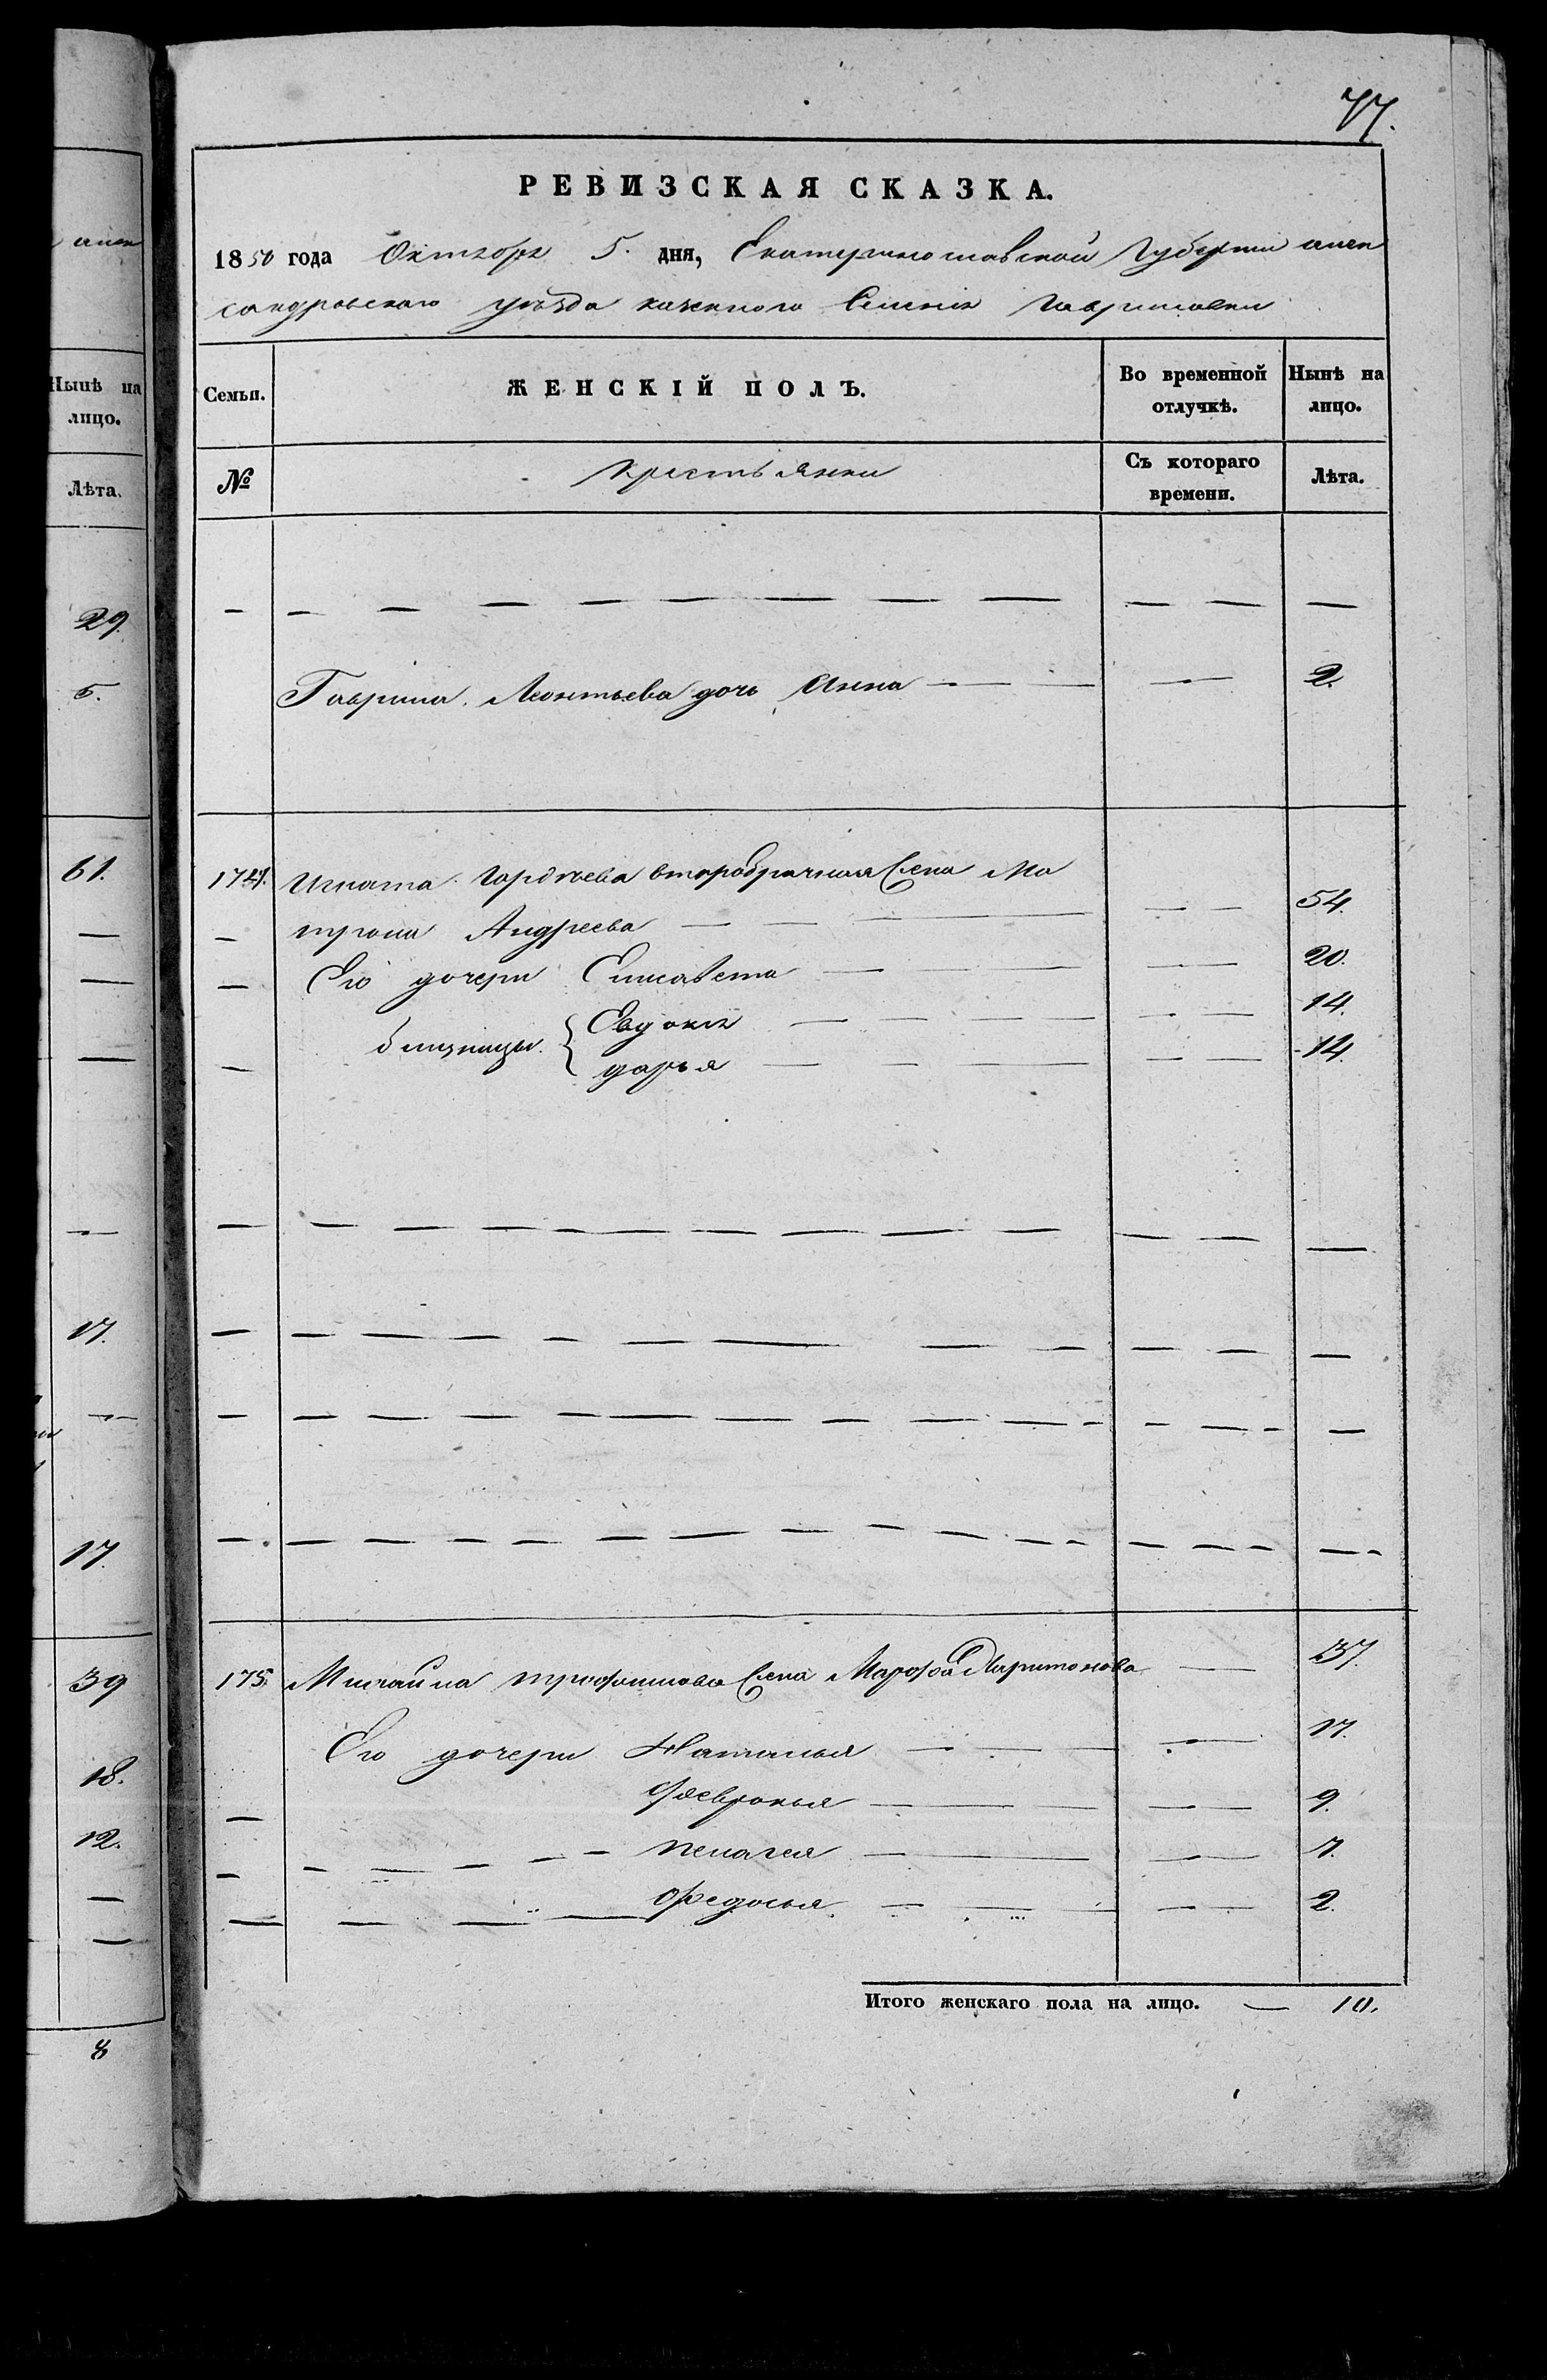 амек
Нынѣ на
лицо.
Лѣта.
29.
5.
61.
17.
17.
39
18.
12.
8
77.
РЕВИЗСКАЯ СКАЗКА.
1850 года Октября 5. дня, Екатеринославской Губерніи алек
сандровскаго уѣзда казенного Селенія Гавриловки
Семьи. ЖЕНСКІЙ ПОЛЪ. Во временной отлучкѣ. Нынѣ на лицо.
№ Крестьянки Съ котораго времени. Лѣта.
Гаврила Леонтьева дочь Анна 2.
174. Игната Гордѣева второбрачная Жена Ма
трона Андреева 54.
Его дочери Елисавета 20.
близницы { Евдокія 14.
дарья 14.
175. Михайла трофимова Жена Марфа Харитонова 37.
Его дочери Наталья 17.
Февронья 9.
пелагея 7.
Федосья 2.
Итого женскаго пола на лицо. — 10.